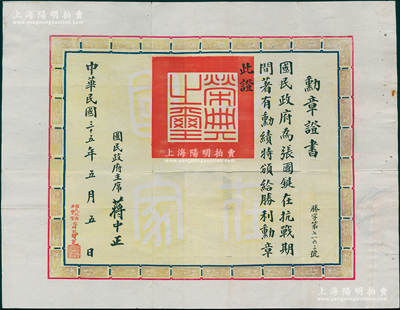 上海陽明拍賣
勳章證書
勝字第
號
國民政府為張國鍵在抗戰期
間著有勳績特頒給勝利勳章
此證
榮典之璽
國民政府主席 蔣中正
中華民國三十五年五月五日
上海陽明拍賣
上海陽明拍賣